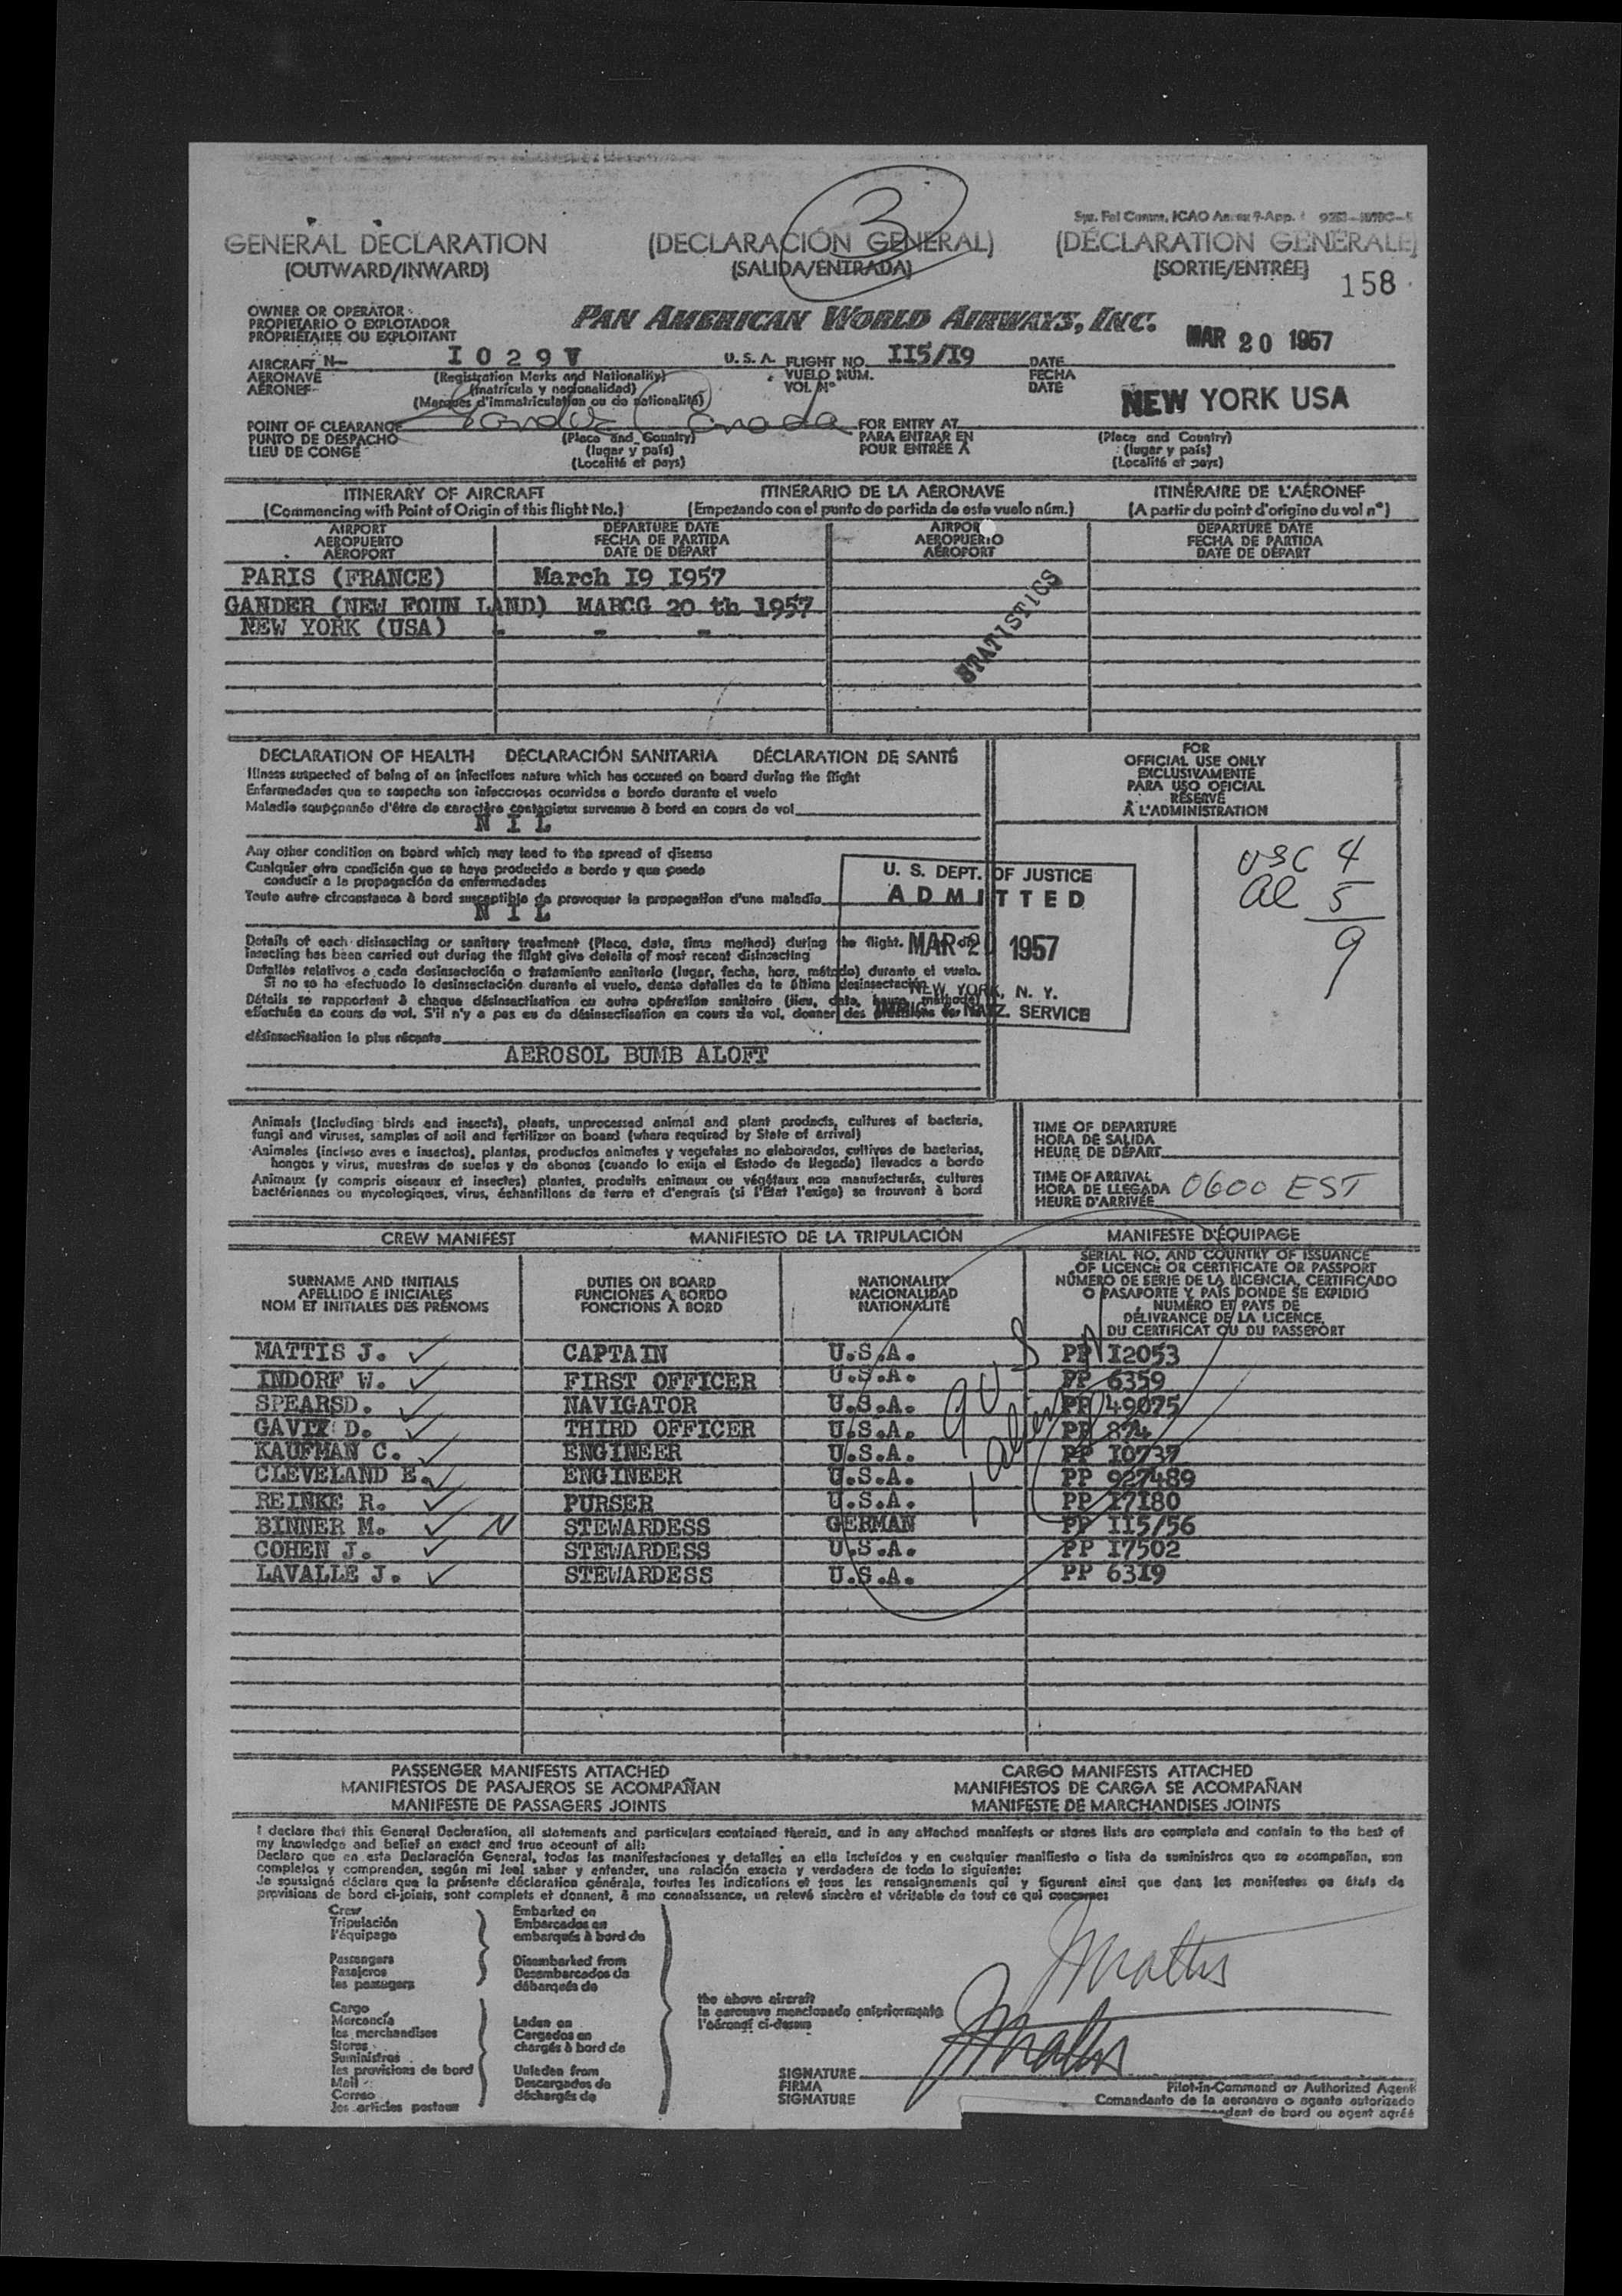 3
Spec. Fal Comm, ICAO Annex 9-App. 1
GENERAL DECLARATION (DECLARACIÓN GENERAL) (DÉCLARATION GÉNÉRALE)
(OUTWARD/INWARD) (SALIDA/ENTRADA) (SORTIE/ENTRÉE)
158
OWNER OR OPERATOR
PROPIETARIO O EXPLOTADOR
PROPRIÉTAIRE OU EXPLOITANT
PAN AMERICAN WORLD AIRWAYS, INC.
MAR 20 1957
AIRCRAFT N- I 0 2 9 V U.S.A. FLIGHT NO. II5/I9 DATE
AERONAVE (Registration Marks and Nationality) VUELO NÚM. FECHA
AÉRONEF (matrícula y nacionalidad) VOL Nº DATE
(Marques d'immatriculation ou de nationalité)
NEW YORK USA
POINT OF CLEARANCE Gander Canada FOR ENTRY AT
PUNTO DE DESPACHO (Place and Country) PARA ENTRAR EN (Place and Country)
LIEU DE CONGÉ (lugar y país) POUR ENTRÉE À (lugar y país)
(Localité et pays) (Localité et pays)
ITINERARY OF AIRCRAFT ITINERARIO DE LA AERONAVE ITINÉRAIRE DE L'AÉRONEF
(Commencing with Point of Origin of this flight No.) (Empezando con el punto de partida de este vuelo núm.) (A partir du point d'origine du vol nº)
AIRPORT DEPARTURE DATE AIRPOR DEPARTURE DATE
AEROPUERTO FECHA DE PARTIDA AEROPUERTO FECHA DE PARTIDA
AÉROPORT DATE DE DÉPART AÉROPORT DATE DE DÉPART
PARIS (FRANCE) March I9 I957
GANDER (NEW FOUN LAND) MARCG 20 th 1957
NEW YORK (USA) - - -
STATISTICS
DECLARATION OF HEALTH DECLARACIÓN SANITARIA DÉCLARATION DE SANTÉ
Illness suspected of being of an infectious nature which has occured on board during the flight
Enfermedades que se sospecha son infecciosas ocurridas a bordo durante el vuelo
Maladie soupçonnée d'être de caractère contagieux survenue à bord en cours de vol
N I L
FOR
OFFICIAL USE ONLY
EXCLUSIVAMENTE
PARA USO OFICIAL
RÉSERVÉ
À L'ADMINISTRATION
Any other condition on board which may lead to the spread of disease
Cualquier otra condición que se haya producido a bordo y que pueda
conducir a la propagación de enfermedades
Toute autre circonstance à bord susceptible de provoquer la propagation d'une maladie
N I L
USC 4
al 5
9
U. S. DEPT. OF JUSTICE
ADMITTED
MAR 20 1957
NEW YORK, N. Y.
IMMIG. & NATZ. SERVICE
Details of each disinsecting or sanitary treatment (Place, date, time method) during the flight. If no dis-
insecting has been carried out during the flight give details of most recent disinsecting
Detalles relativos a cada desinsectación o tratamiento sanitario (lugar, fecha, hora, método) durante el vuelo.
Si no se ha efectuado la desinsectación durante el vuelo, dense detalles de la última desinsectación
Détails se rapportant à chaque désinsectisation ou autre opération sanitaire (lieu, date, heure, méthode)
effectuée en cours de vol. S'il n'y a pas eu de désinsectisation en cours de vol, donner des précisions sur la
désinsectisation la plus récente
AEROSOL BUMB ALOFT
Animals (Including birds and insects), plants, unprocessed animal and plant products, cultures of bacteria,
fungi and viruses, samples of soil and fertilizer on board (where required by State of arrival)
Animales (incluso aves e insectos), plantas, productos animales y vegetales no elaborados, cultivos de bacterias,
hongos y virus, muestras de suelos y de abonos (cuando lo exija el Estado de llegada) llevados a bordo
Animaux (y compris oiseaux et insectes) plantes, produits animaux ou végétaux non manufacturés, cultures
bactériennes ou mycologiques, virus, échantillons de terre et d'engrais (si l'État l'exige) se trouvant à bord
TIME OF DEPARTURE
HORA DE SALIDA
HEURE DE DÉPART
TIME OF ARRIVAL
HORA DE LLEGADA 0600 EST
HEURE D'ARRIVÉE
CREW MANIFEST MANIFIESTO DE LA TRIPULACIÓN MANIFESTE D'ÉQUIPAGE
SURNAME AND INITIALS
APELLIDO E INICIALES
NOM ET INITIALES DES PRÉNOMS
DUTIES ON BOARD
FUNCIONES A BORDO
FONCTIONS À BORD
NATIONALITY
NACIONALIDAD
NATIONALITÉ
SERIAL NO. AND COUNTRY OF ISSUANCE
OF LICENCE OR CERTIFICATE OR PASSPORT
NÚMERO DE SERIE DE LA LICENCIA, CERTIFICADO
O PASAPORTE Y PAÍS DONDE SE EXPIDIÓ
NUMÉRO ET PAYS DE
DÉLIVRANCE DE LA LICENCE,
DU CERTIFICAT OU DU PASSEPORT
MATTIS J. CAPTAIN U.S.A. PP I2053
INDORF W. FIRST OFFICER U.S.A. PP 6359
SPEARSD. NAVIGATOR U.S.A. PP 49075
GAVIT D. THIRD OFFICER U.S.A. PP 874
KAUFMAN C. ENGINEER U.S.A. PP I0737
CLEVELAND E. ENGINEER U.S.A. PP 927489
REINKE R. PURSER U.S.A. PP I7I80
BINNER M. N STEWARDESS GERMAN PP II5/56
COHEN J. STEWARDESS U.S.A. PP I7502
LAVALLE J. STEWARDESS U.S.A. PP 63I9
9 US
1 alien
PASSENGER MANIFESTS ATTACHED CARGO MANIFESTS ATTACHED
MANIFIESTOS DE PASAJEROS SE ACOMPAÑAN MANIFIESTOS DE CARGA SE ACOMPAÑAN
MANIFESTE DE PASSAGERS JOINTS MANIFESTE DE MARCHANDISES JOINTS
I declare that this General Declaration, all statements and particulars contained therein, and in any attached manifests or stores lists are complete and contain to the best of
my knowledge and belief an exact and true account of all:
Declaro que en esta Declaración General, todas las manifestaciones y detalles en ella incluídos y en cualquier manifiesto o lista de suministros que se acompañan, son
completos y comprenden, según mi leal saber y entender, una relación exacta y verdadera de todo lo siguiente:
Je soussigné déclare que la présente déclaration générale, toutes les indications et tous les renseignements qui y figurent ainsi que dans les manifestes ou états de
provisions de bord ci-joints, sont complets et donnent, à ma connaissance, un relevé sincère et véritable de tout ce qui concerne:
Crew
Tripulación
l'équipage
Passengers
Pasajeros
les passagers
Cargo
Mercancía
les merchandises
Stores
Suministros
les provisions de bord
Mail
Correo
les articles postaux
Embarked on
Embarcados en
embarqués à bord de
Disembarked from
Desembarcados de
débarqués de
Laden on
Cargados en
chargés à bord de
Unladen from
Descargados de
déchargés de
the above aircraft
la aeronave mencionada anteriormente
l'aéronef ci-dessus
JMattis
JMattis
SIGNATURE
FIRMA
SIGNATURE
Pilot-in-Command or Authorized Agent
Comandante de la aeronave o agente autorizado
de bord ou agent agréé